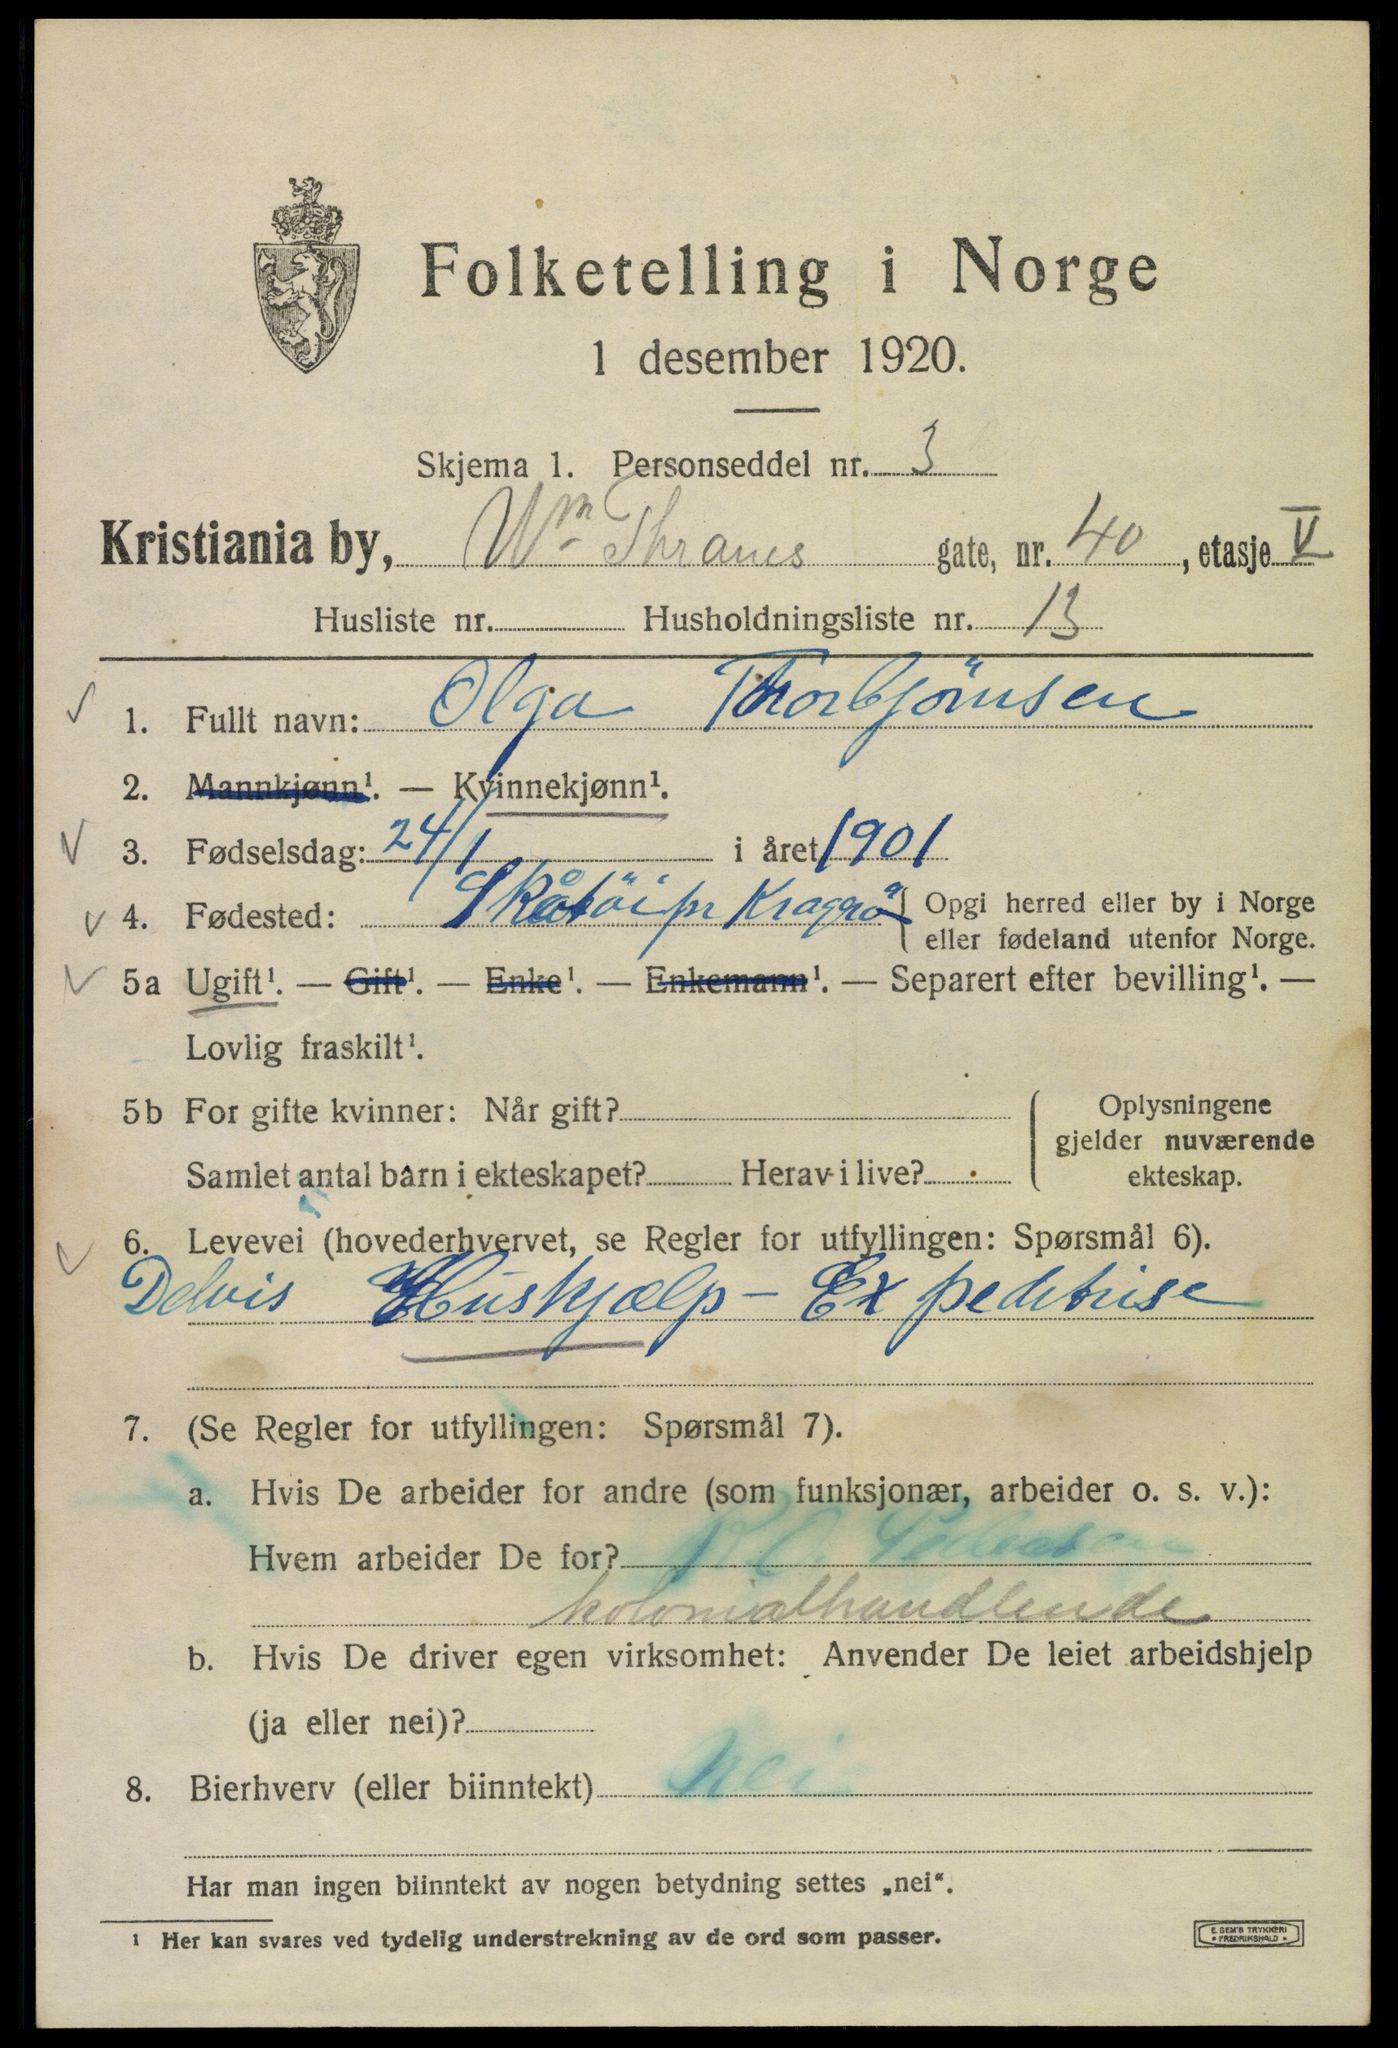 Folketelling i Norge
1 desember 1920.
Skjema 1. Personseddel nr. 3
Kristiania by, Wm Thranes gate, nr. 40, etasje V
Husliste nr. Husholdningsliste nr. 13
1. Fullt navn: Olga Thorbjörnsen
2. Mannkjønn¹. — Kvinnekjønn¹.
3. Fødselsdag: 24/1 i året 1901
4. Fødested: Skåtöi pr Kragerö { Opgi herred eller by i Norge
eller fødeland utenfor Norge.
5a Ugift¹. — Gift¹. — Enke¹. — Enkemann¹. — Separert efter bevilling¹. —
Lovlig fraskilt¹.
5b For gifte kvinner: Når gift?
Samlet antal barn i ekteskapet? Herav i live?
Oplysningene
gjelder nuværende
ekteskap.
6. Levevei (hovederhvervet, se Regler for utfyllingen: Spørsmål 6).
Delvis Huskjælp - Expeditrise
7. (Se Regler for utfyllingen: Spørsmål 7).
a. Hvis De arbeider for andre (som funksjonær, arbeider o. s. v.):
Hvem arbeider De for? Pedersen
kolonialhandlende
b. Hvis De driver egen virksomhet: Anvender De leiet arbeidshjelp
(ja eller nei)?
8. Bierhverv (eller biinntekt) Nei
Har man ingen biinntekt av nogen betydning settes „nei“.
¹ Her kan svares ved tydelig understrekning av de ord som passer.
E. SEM'S TRYKKERI
FREDRIKSHALD